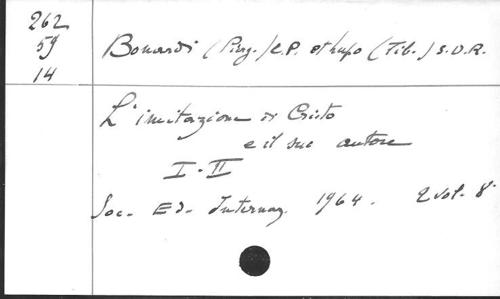 262
59
14
Bonardi (Pierg.) C.P. et Lupo (Tib.) S.D.B.
L'imitazione di Cristo
e il suo autore
I-II
Soc. Ed. Internaz. 1964. 2 vol. 8°